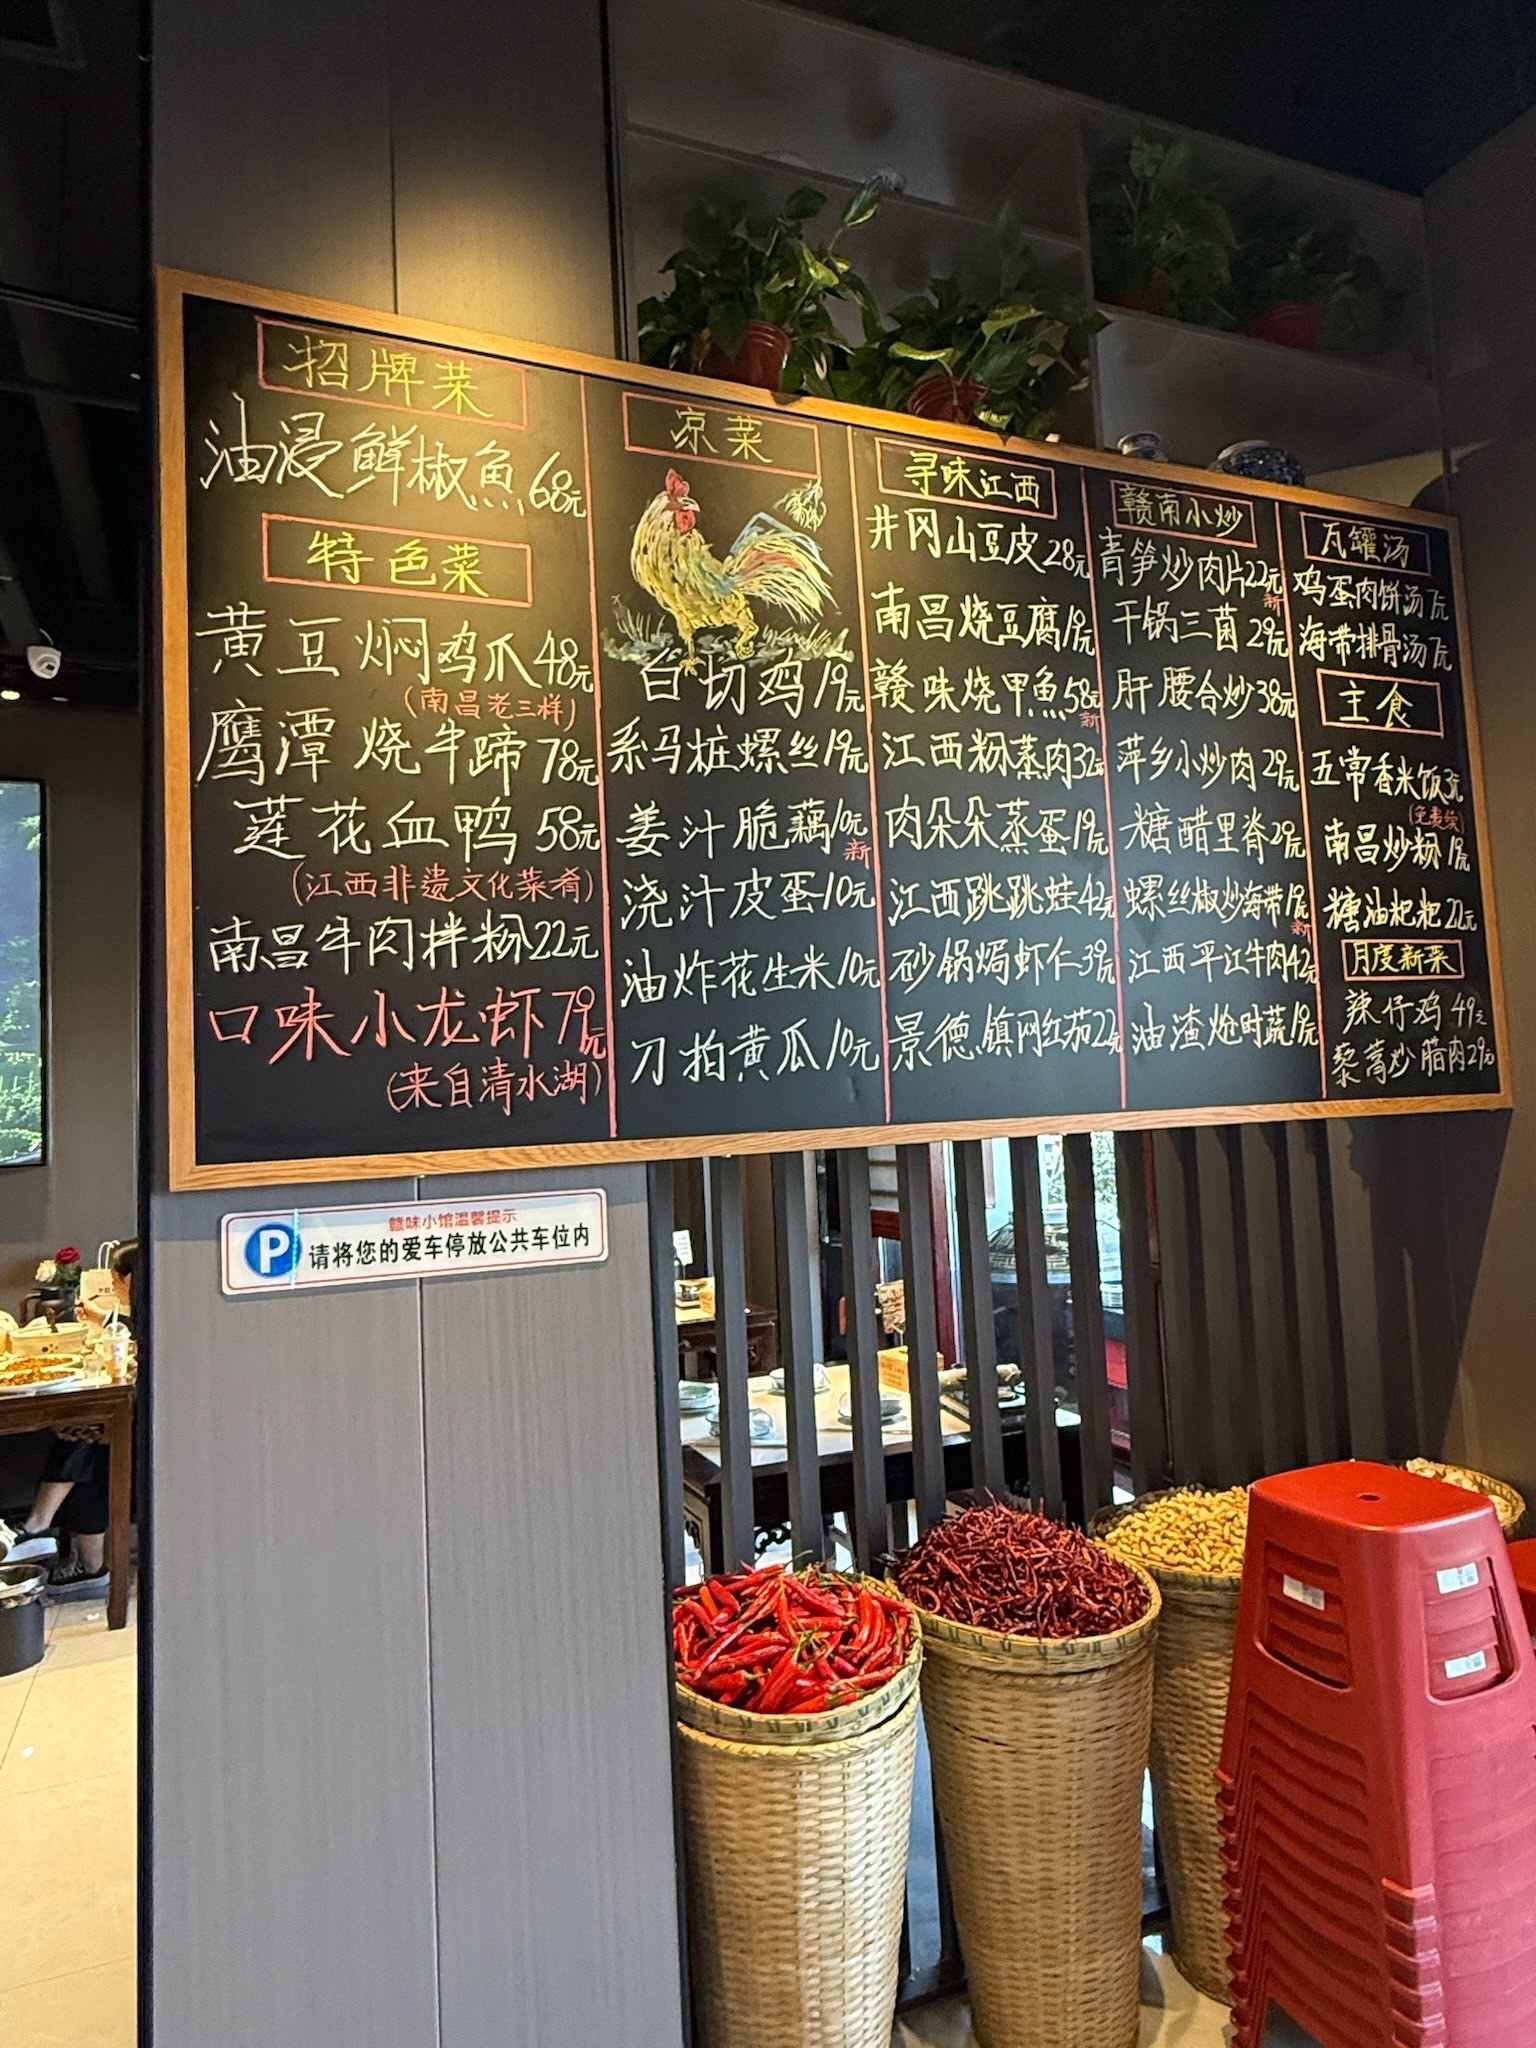 招牌菜
油浸鲜椒鱼68元
特色菜
黄豆焖鸡爪48元
(南昌老三样)
鹰潭烧牛蹄78元
莲花血鸭58元
(江西非遗文化菜肴)
南昌牛肉拌粉22元
口味小龙虾79元
(来自清水湖)
凉菜
白切鸡19元
系马桩螺丝19元
姜汁脆藕10元
新
浇汁皮蛋10元
油炸花生米10元
刀拍黄瓜10元
寻味江西
井冈山豆皮28元
南昌烧豆腐19元
赣味烧甲鱼58元
新
江西粉蒸肉32元
肉朵朵蒸蛋19元
江西跳跳蛙42元
砂锅焗虾仁39元
景德镇网红茄22元
赣南小炒
青笋炒肉片22元
新
干锅三菌29元
肝腰合炒38元
萍乡小炒肉29元
糖醋里脊29元
螺丝椒炒海带19元
新
江西平江牛肉42元
油渣炝时蔬19元
瓦罐汤
鸡蛋肉饼汤7元
海带排骨汤7元
主食
五常香米饭3元
(免费续)
南昌炒粉19元
糖油粑粑22元
月度新菜
辣仔鸡49元
藜蒿炒腊肉29元
赣味小馆温馨提示
P 请将您的爱车停放公共车位内